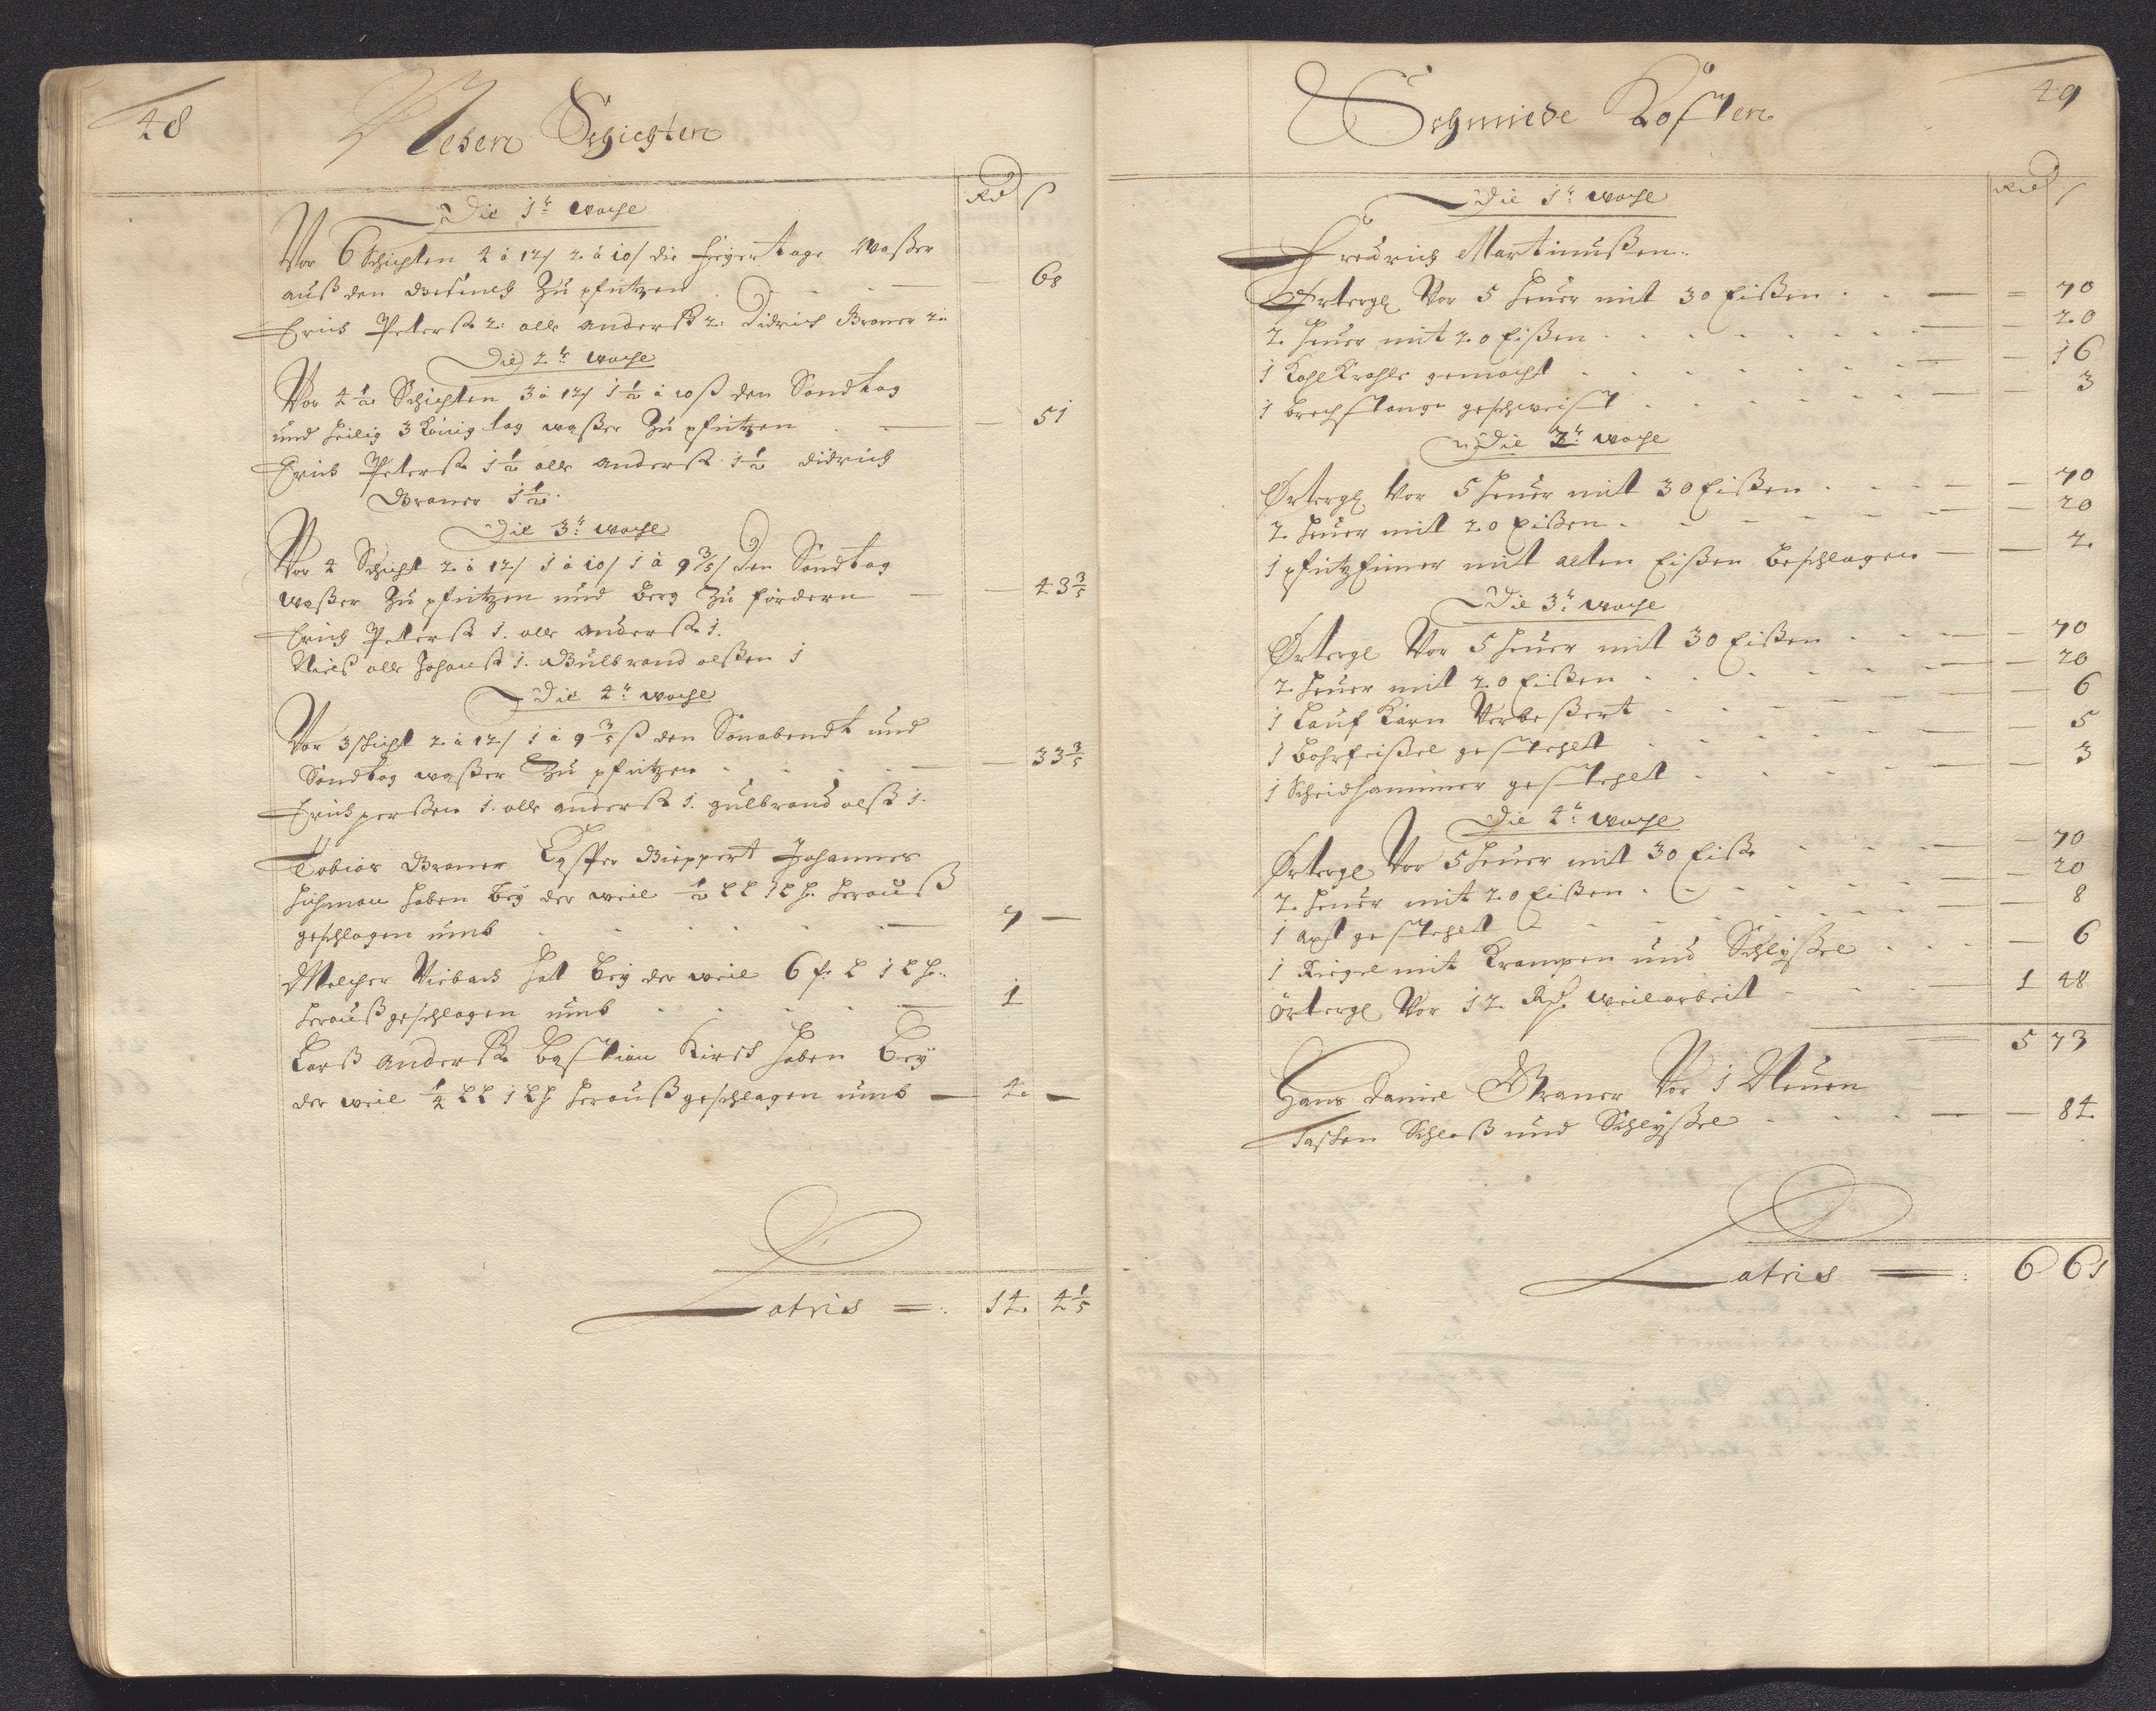 48
Neben Schichten
Rd ß
Die 1te woche
Vor 6 Schichten 4 à 12/ 2 à 10/ die feyertage Waßer
auß den Zu pfützen 68
Erich Peterß: 2: olle anderß: 2: Didrich Braner 2:
Die 2te woche
Vor 4 1/2 Schichten 3 à 12/ 1 1/2 à 10 ß den Sondtag
und heilig 3 König tag waßer Zu pfützen 51
Erich Peterß: 1 1/2 olle anderß: 1 1/2 didrich
Braner 1 1/2
Die 3te woche
Vor 4 Schicht 2 à 12/ 1 à 10/ 1 à 9 3/5/ den Sondtag
waßer Zu pfützen und Berg Zu fördern 43 3/5
Erich Peterß: 1. olle anderß: 1.
Nieß olle Johanß: 1. Gulbrand olßen 1
Die 4te woche
Vor 3 schicht 2 à 12/ 1 à 9 3/5 ß den Sonabendt und
Sondtag waßer Zu pfützen 33 3/5
Erich perßen 1. olle anderß: 1. gulbrand olß: 1.
Tobias Braner Casper Bieppert Johannes
Hichman haben bey der weil 1/2 LL 1 Lh. herauß
geschlagen umb 7 —
Melcher Viebach hat bey der weil 6 L 1 Lh:
heraußgeschlagen umb 1
Larß anderß: Bastian Kirsch haben bey
der weil 1/4 LL 1 Lh heraußgeschlagen umb 4 —
Latris 14 4 1/5
49
Schmiede Kosten
Rd ß
Die 1te woche
Fredrich Martinußen:
Örtergl Vor 5 heuer mit 30 Eißen 70
2 heuer mit 20 Eißen 20
1 Kohl Krahle gemacht 16
1 brechstange geschweist 3
Die 2te woche
Örtergl Vor 5 heuer mit 30 Eißen 70
2 heuer mit 20 Eißen 20
1 pfützEimer mit alten Eißen beschlagen 2
Die 3te woche
Örtergl Vor 5 heuer mit 30 Eißen 70
2 heuer mit 20 Eißen 20
1 Lauf Karn Verbeßert 6
1 bohrfeißel gestehlt 5
1 Scheidhammer gestehlt 3
Die 4te woche
Örtergl Vor 5 heuer mit 30 Eiß: 70
2 heuer mit 20 Eißen 20
1 axt gestehlt 8
1 Riegel mit Krampen und Schlyßel 6
örtergl Vor 12 Rd. weilarbeit 1 48
5 73
Hans Daniel Braner Vor 1 Neuen
Kasten Schloß und Schlyßel 84
Latris 6 61